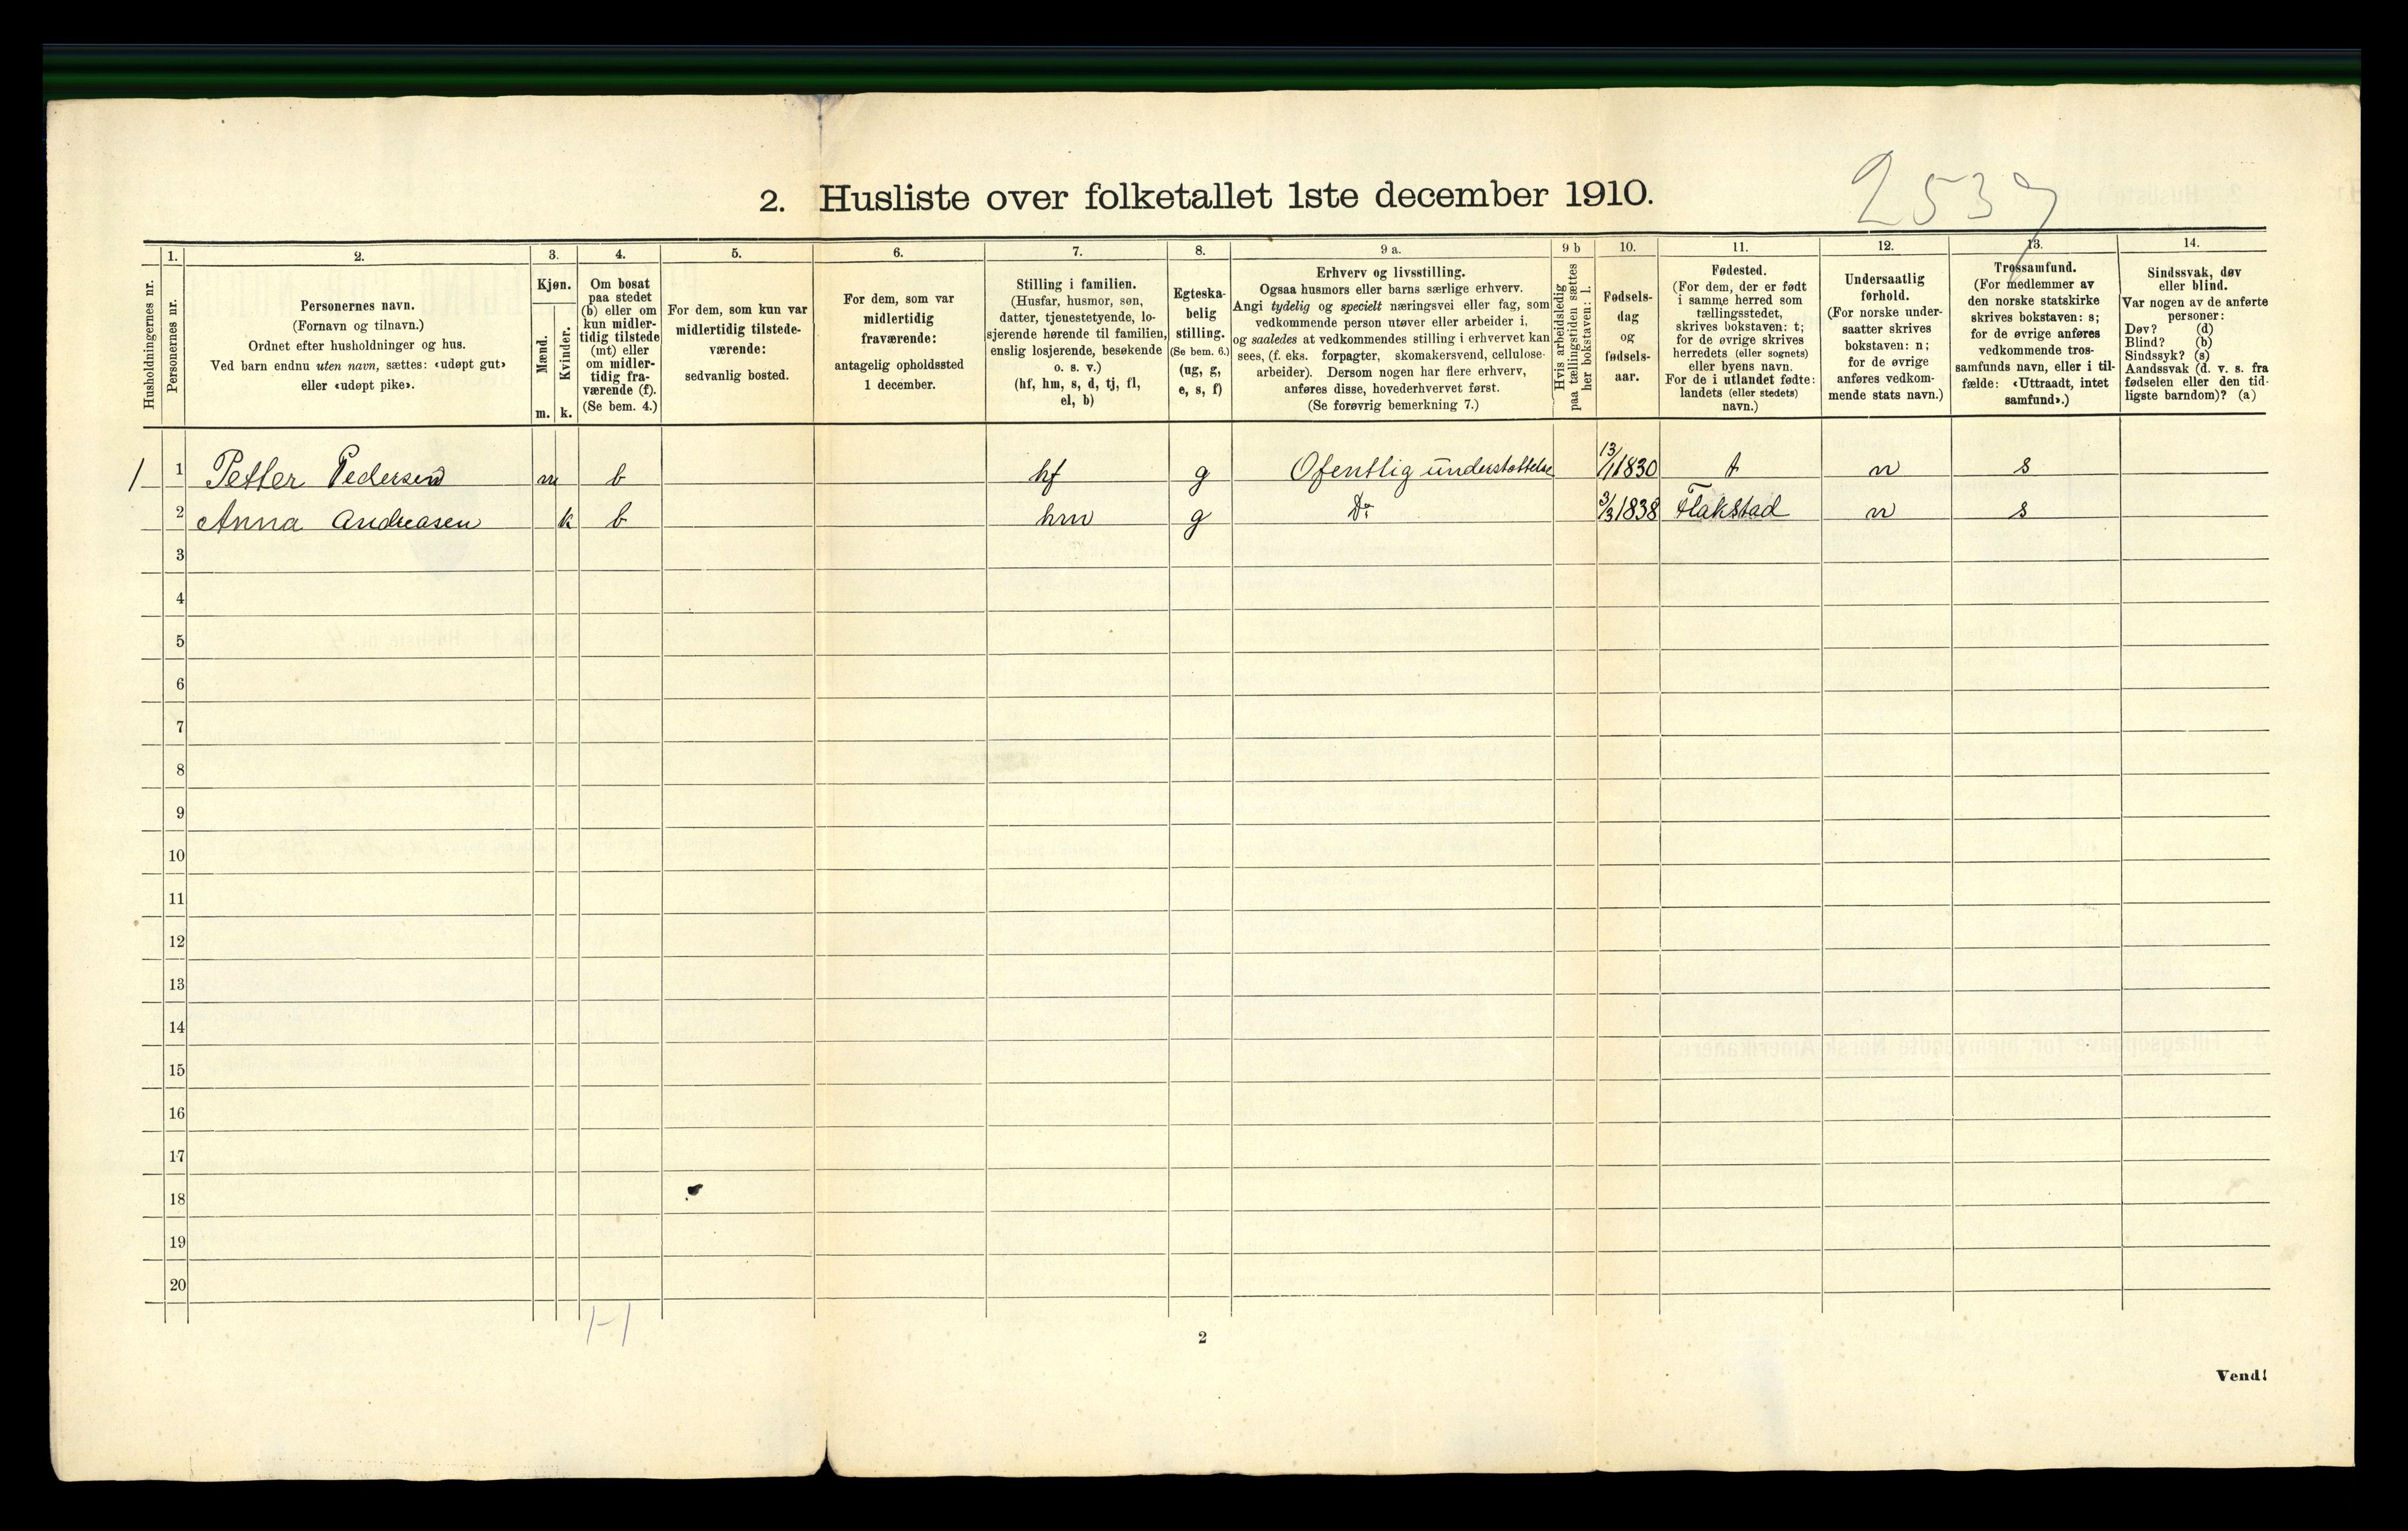 2539
2. Husliste over folketallet 1ste december 1910.
Husholdningernes nr.
1.
Personernes nr.
2.
Personernes navn.
(Fornavn og tilnavn.)
Ordnet efter husholdninger og hus.
Ved barn endnu uten navn, sættes: «udøpt gut»
eller «udøpt pike».
3.
Kjøn.
Mænd.
Kvinder.
m. k.
4.
Om bosat
paa stedet
(b) eller om
kun midler-
tidig tilstede
(mt) eller
om midler-
tidig fra-
værende (f).
(Se bem. 4.)
5.
For dem, som kun var
midlertidig tilstede-
værende:
sedvanlig bosted.
6.
For dem, som var
midlertidig
fraværende:
antagelig opholdssted
1 december.
7.
Stilling i familien.
(Husfar, husmor, søn,
datter, tjenestetyende, lo-
sjerende hørende til familien,
enslig losjerende, besøkende
o. s. v.)
(hf, hm, s, d, tj, fl,
el, b)
8.
Egteska-
belig
stilling.
(Se bem. 6.)
(ug, g,
e, s, f)
9 a.
Erhverv og livsstilling.
Ogsaa husmors eller barns særlige erhverv.
Angi tydelig og specielt næringsvei eller fag, som
vedkommende person utøver eller arbeider i,
og saaledes at vedkommendes stilling i erhvervet kan
sees, (f. eks. forpagter, skomakersvend, cellulose-
arbeider). Dersom nogen har flere erhverv,
anføres disse, hovederhvervet først.
(Se forøvrig bemerkning 7.)
9 b
Hvis arbeidsledig
paa tællingstiden sættes
her bokstaven: l.
10.
Fødsels-
dag
og
fødsels-
aar.
11.
Fødested.
(For dem, der er født
i samme herred som
tællingsstedet,
skrives bokstaven: t;
for de øvrige skrives
herredets (eller sognets)
eller byens navn.
For de i utlandet fødte:
landets (eller stedets)
navn.)
12.
Undersaatlig
forhold.
(For norske under-
saatter skrives
bokstaven: n;
for de øvrige
anføres vedkom-
mende stats navn.)
13.
Trossamfund.
(For medlemmer av
den norske statskirke
skrives bokstaven: s;
for de øvrige anføres
vedkommende tros-
samfunds navn, eller i til-
fælde: «Uttraadt, intet
samfund».)
14.
Sindssvak, døv
eller blind.
Var nogen av de anførte
personer:
Døv? (d)
Blind? (b)
Sindssyk? (s)
Aandssvak (d. v. s. fra
fødselen eller den tid-
ligste barndom)? (a)
1 1 Petter Pedersen m b hf g Ofentlig understøttelse 13/11830 t n s
2 Anna Andreasen k b hm g Do 3/3 1838 Flakstad n s
3
4
5
6
7
8
9
10
11
12
13
14
15
16
17
18
19
20
1-1
2
Vend!